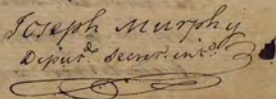 Joseph Murphy
Deput.^d Secret. int.^o